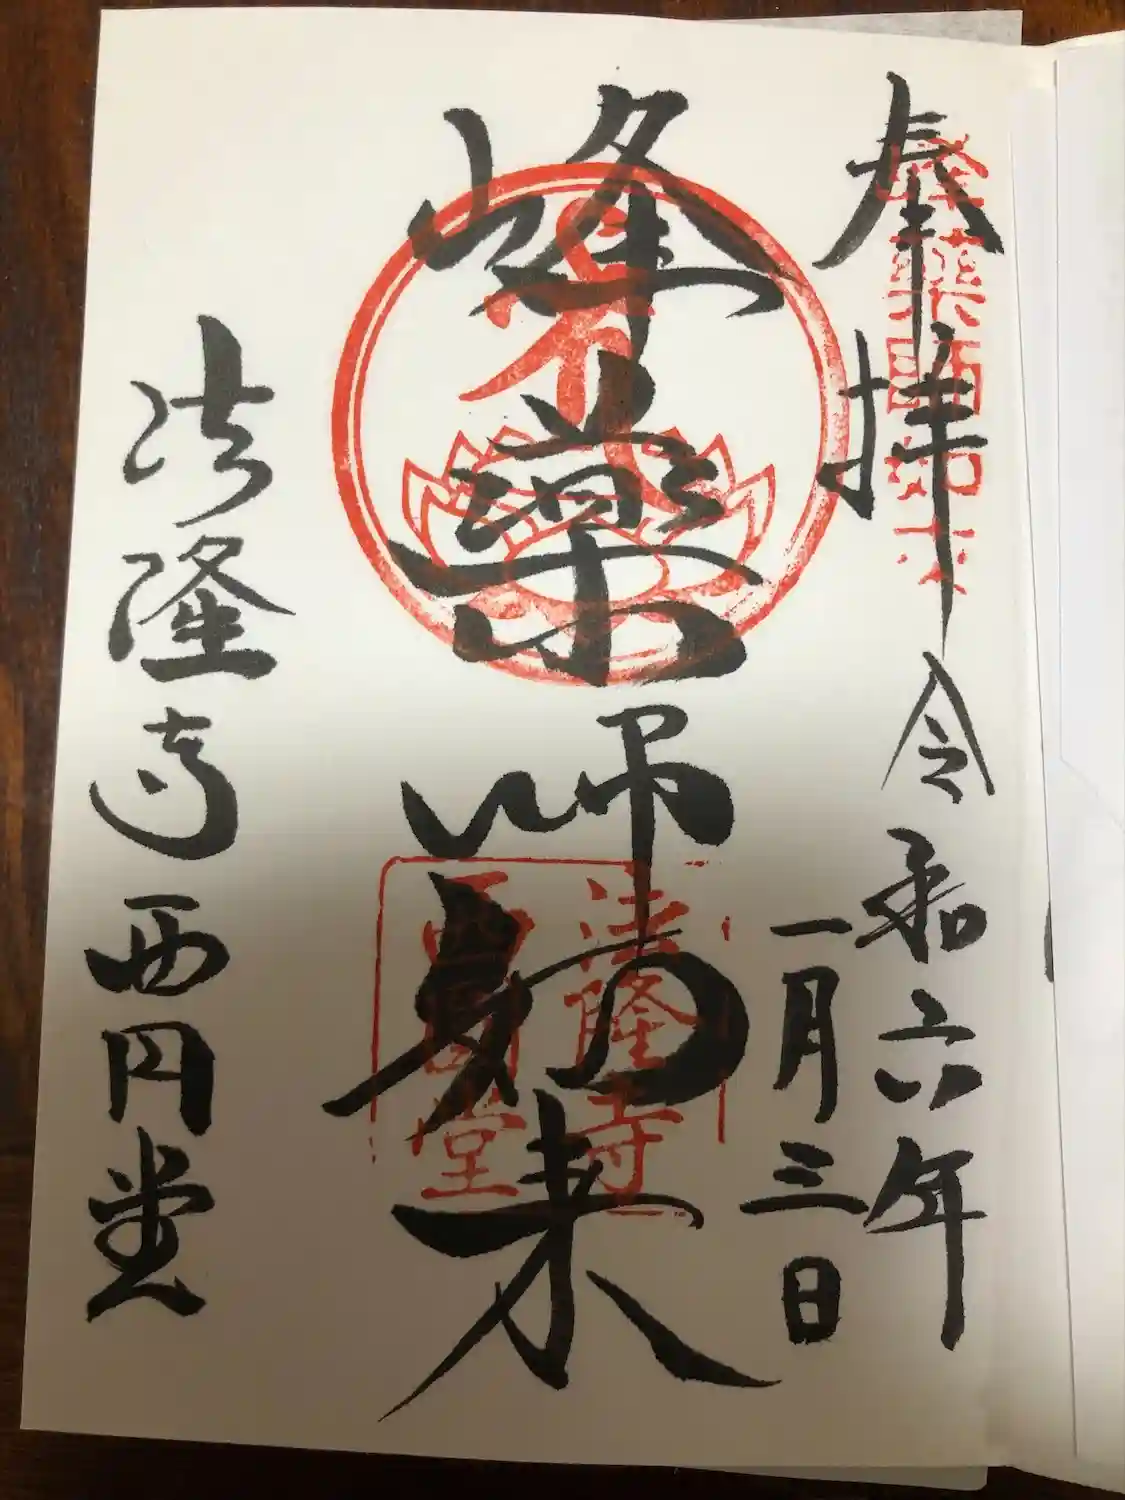 奉拝
令和六年
一月三日
峰薬師如来
法隆寺西円堂
峰薬師如来
法隆寺
西円堂